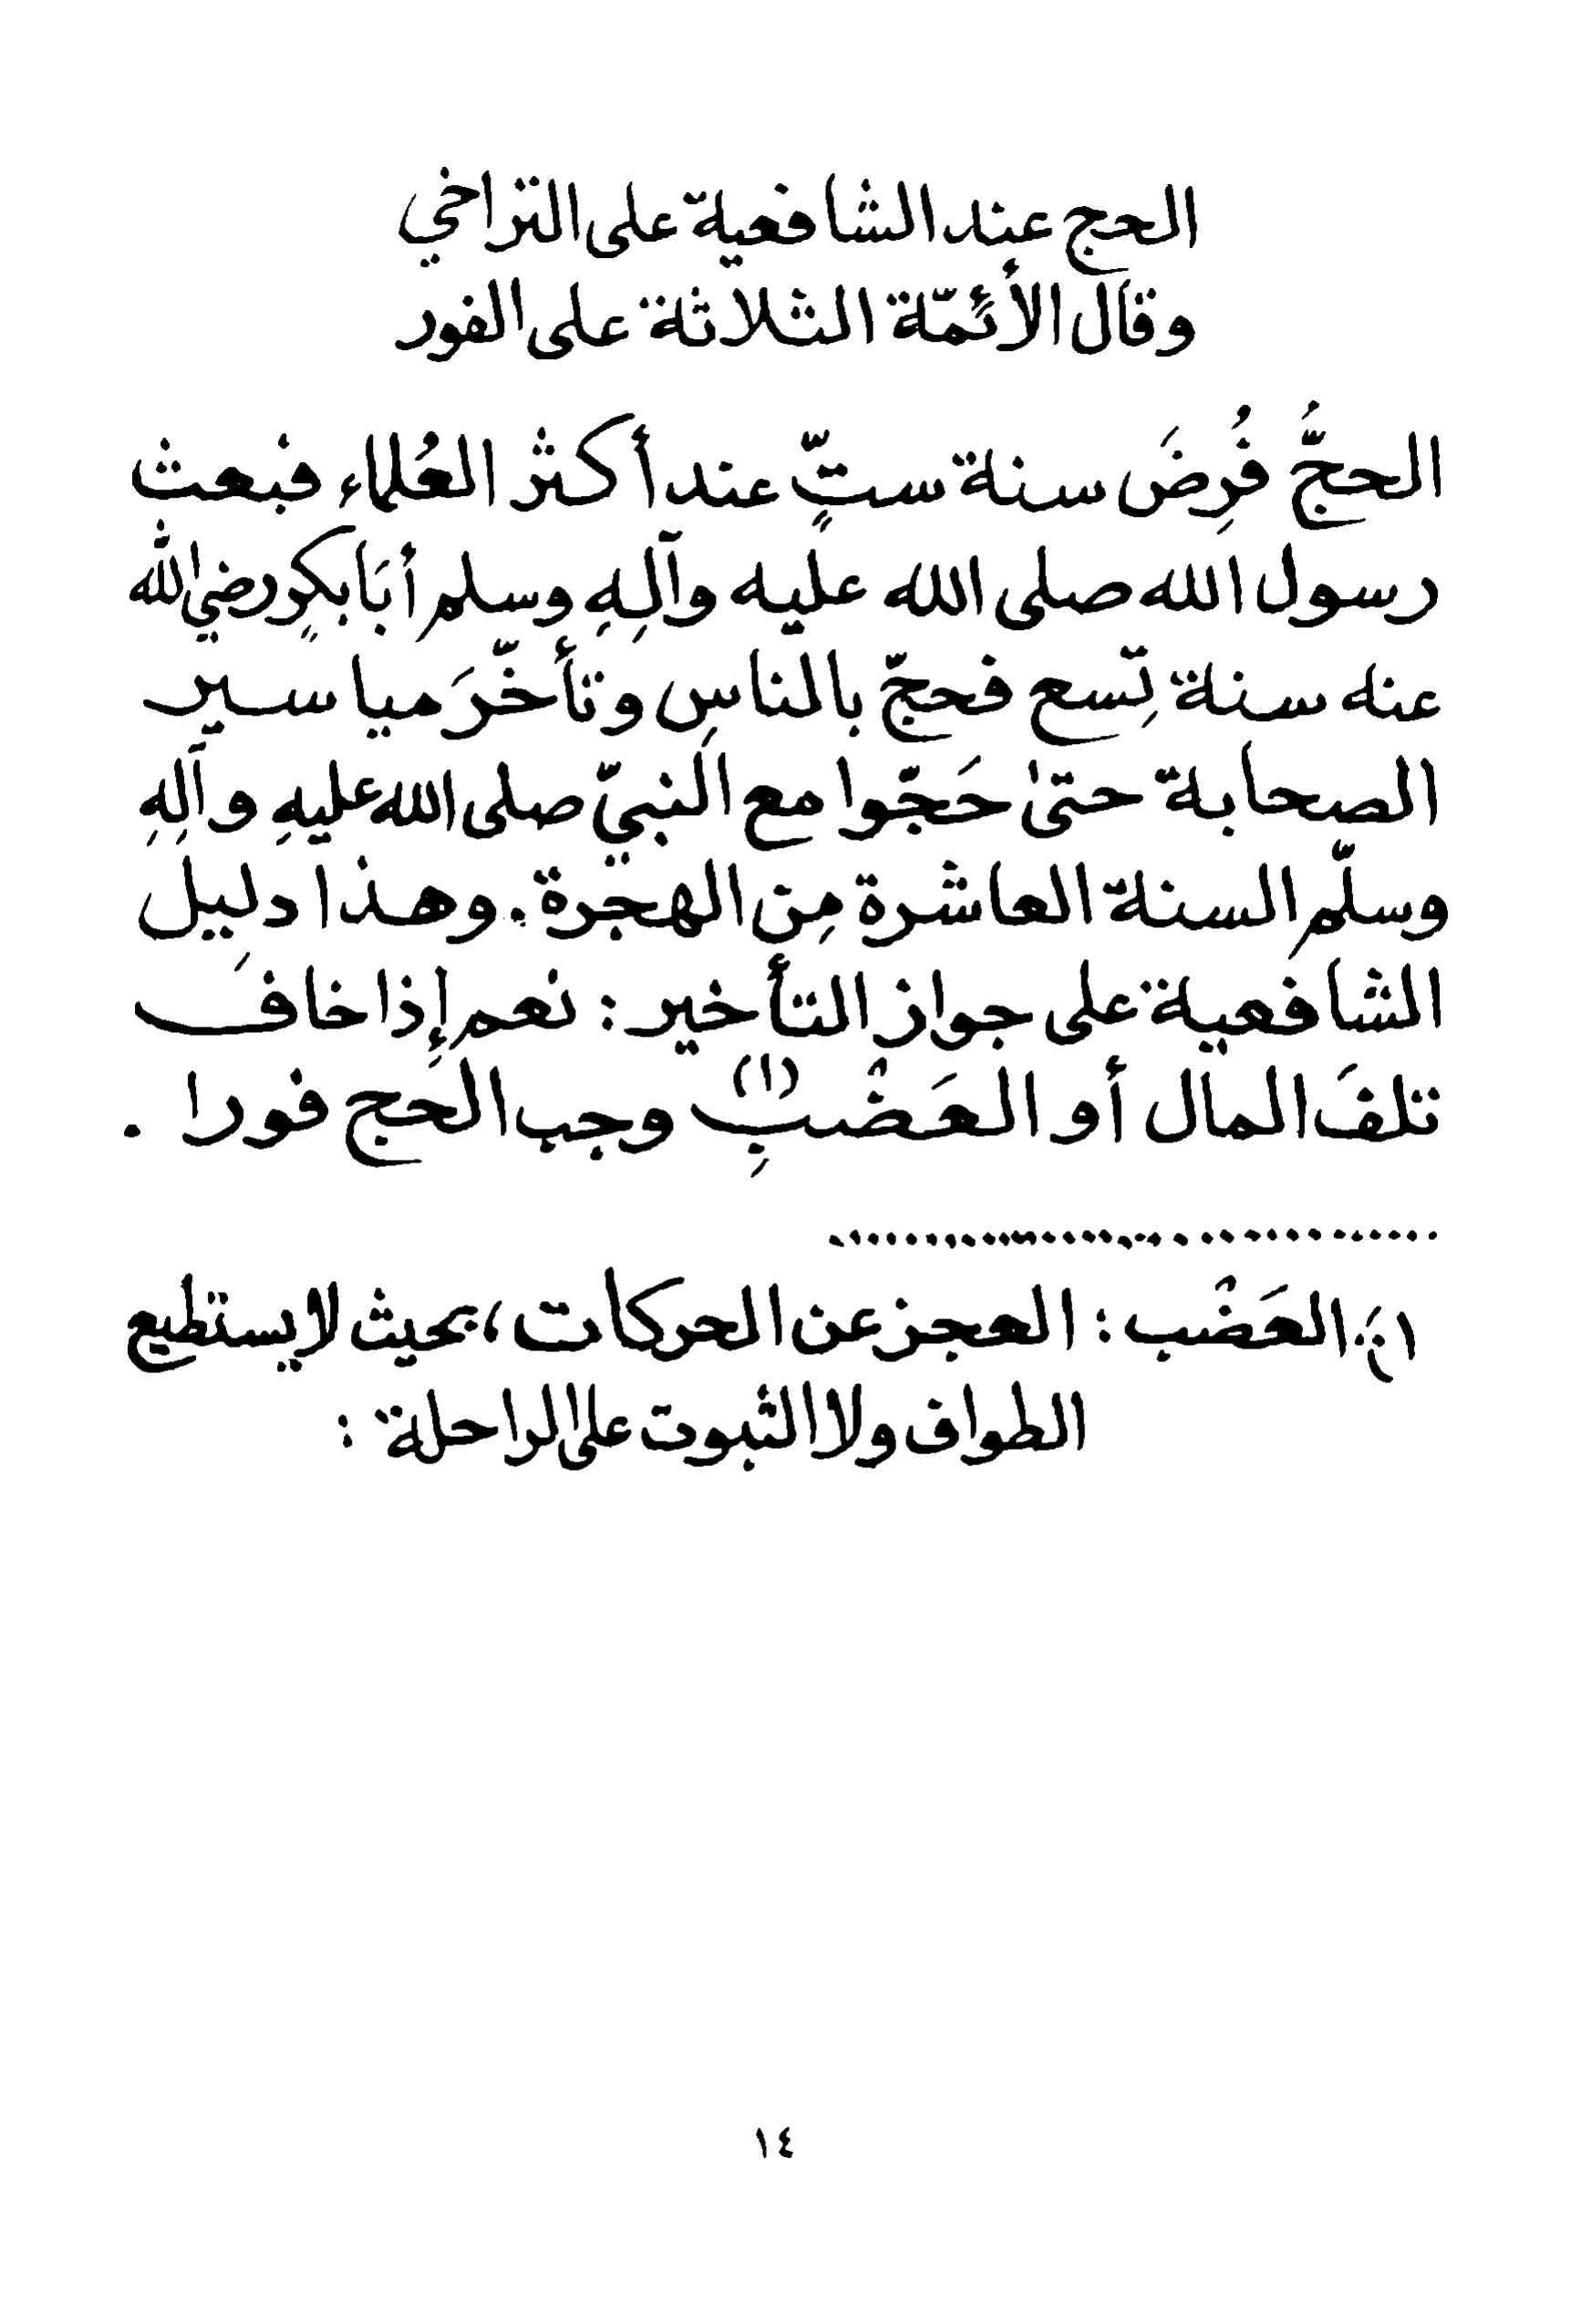 الحج عند الشافعية على التراخي
وقال الأئمّة الثلاثة على الفور
الحجُّ فُرِضَ سنة ستٍّ عند أكثر العُلماء فبعث
رسول الله صلى الله عليه وآلِهِ وسلم أبَا بكرٍ رضي الله
عنه سنة تِسع فحجّ بالناسِ وتأخّرَ مياسير
الصحابة حتىٰ حَجّوا مع النبيّ صلى الله عليهِ وآلِهِ
وسلّم السنة العاشرة مِن الهجرة. وهذا دليل
الشافعية على جواز التأخير: نعم إذا خافَ
تلفَ المال أو العَضْبِ (١) وجب الحج فورا .
(١) العَضْب: العجز عن الحركات، بحيث لا يستطيع
الطواف ولا الثبوت على الراحلة :
١٤